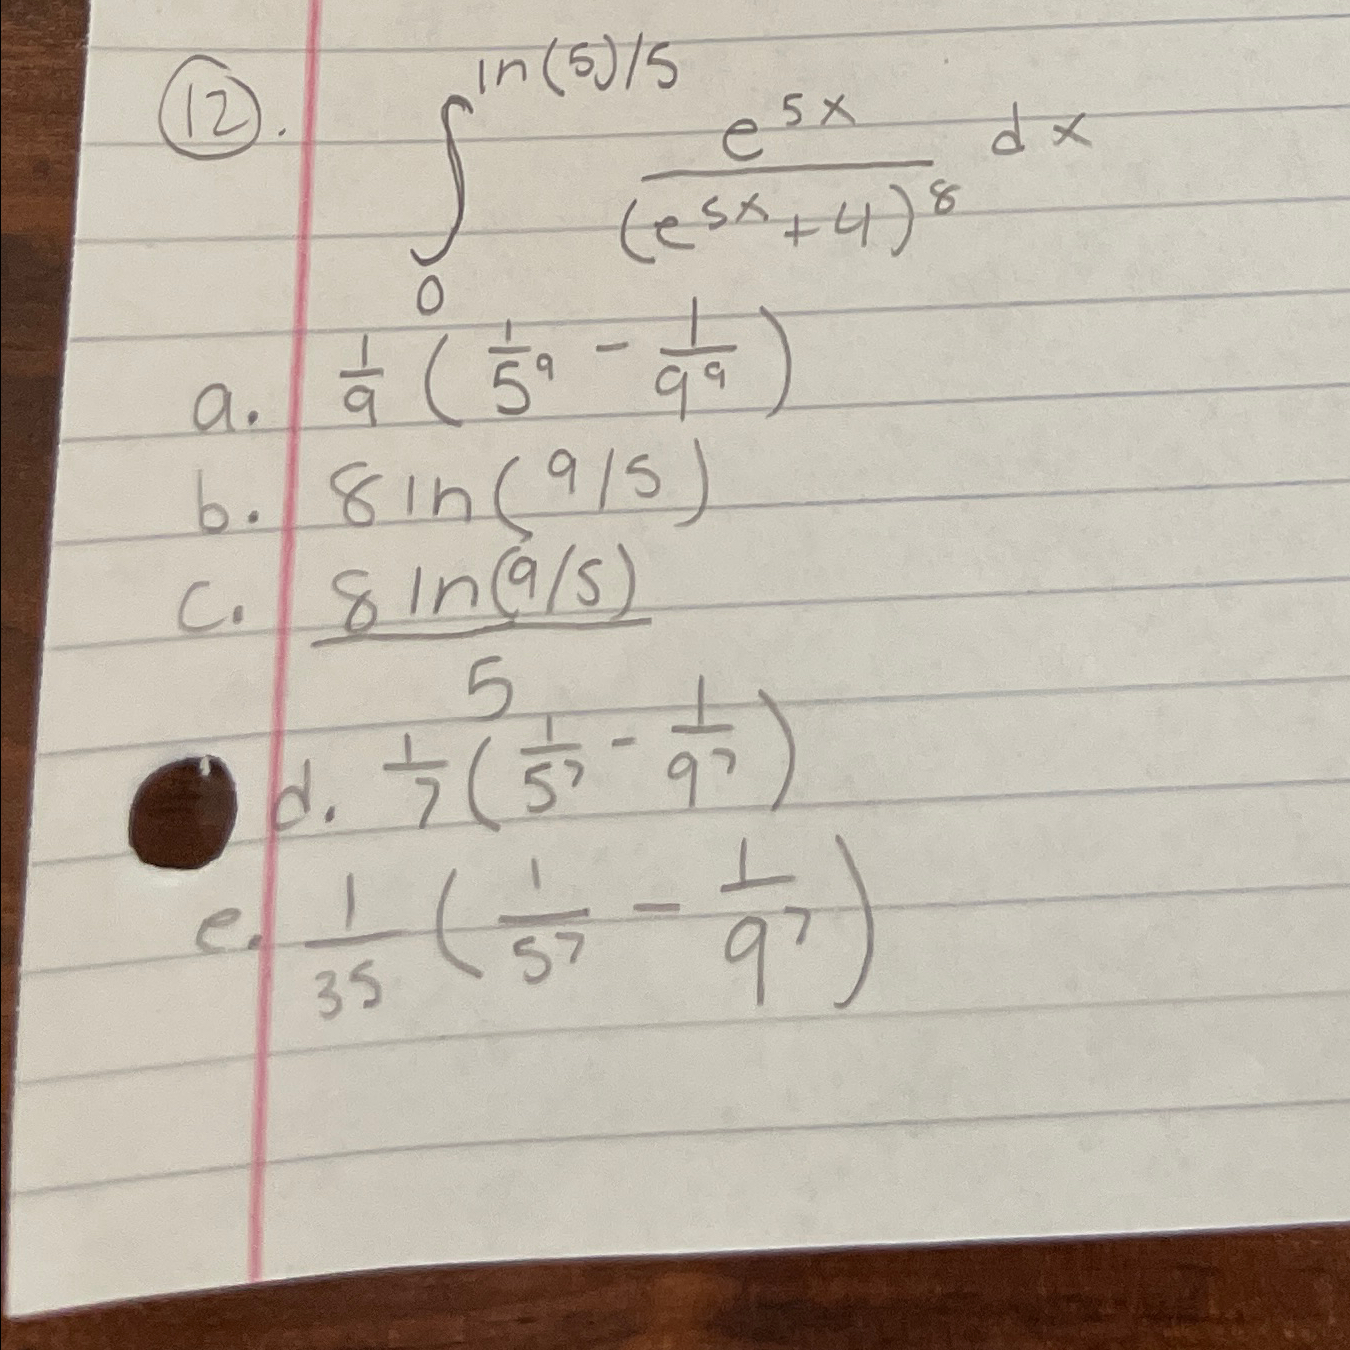 12.
ln(5)/5
∫ e^{5x} / (e^{5x} + 4)^8 dx
0
a. 1/9 ( 1/5^9 - 1/9^9 )
b. 8 ln(9/5)
c. 8 ln(9/5) / 5
d. 1/7 ( 1/5^7 - 1/9^7 )
e. 1/35 ( 1/5^7 - 1/9^7 )